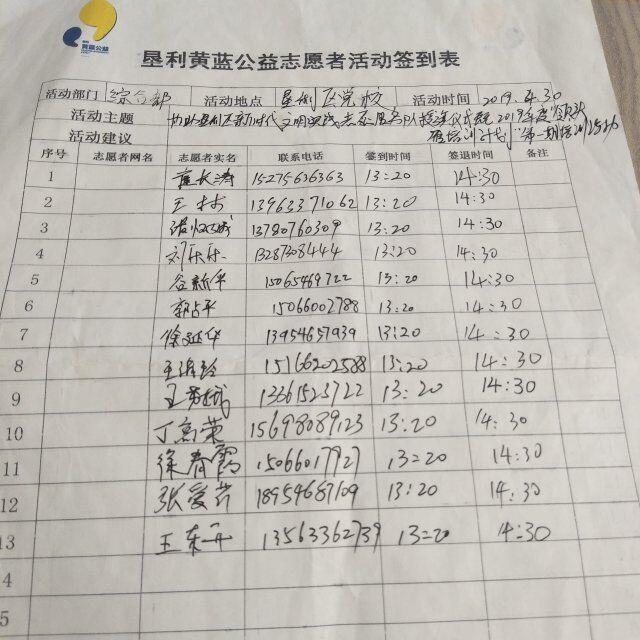 黄蓝公益
垦利黄蓝公益志愿者活动签到表
活动部门 综合部 活动地点 垦利区党校 活动时间 2019.4.30
活动主题 垦利区新时代文明实践志愿服务 仪式暨2019年度"领头
活动建议 雁培训计划"第一期培训活动
序号 志愿者网名 志愿者实名 联系电话 签到时间 签退时间 备注
1 董长涛 15275636363 13:20 14:30
2 王 13963371062 13:20 14:30
3 13780760309 13:20 14:30
4 刘乐乐 13287308444 13:20 14:30
5 谷新华 15065469722 13:20 14:30
6 15066002788 13:20 14:30
7 徐延华 13954657939 13:20 14:30
8 15166202588 13:20 14:30
9 王 13361523722 13:20 14:30
10 丁高荣 15698089123 13:20 14:30
11 徐春霞 15066017727 13=20 14:30
12 张爱芳 18954687109 13:20 14:30
13 王东舟 13563362739 13=20 4:30
4
5